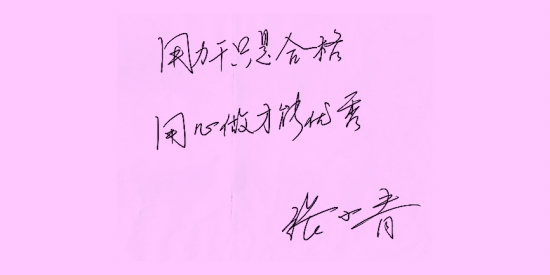 用力干只是合格
用心做才能优秀
张小青